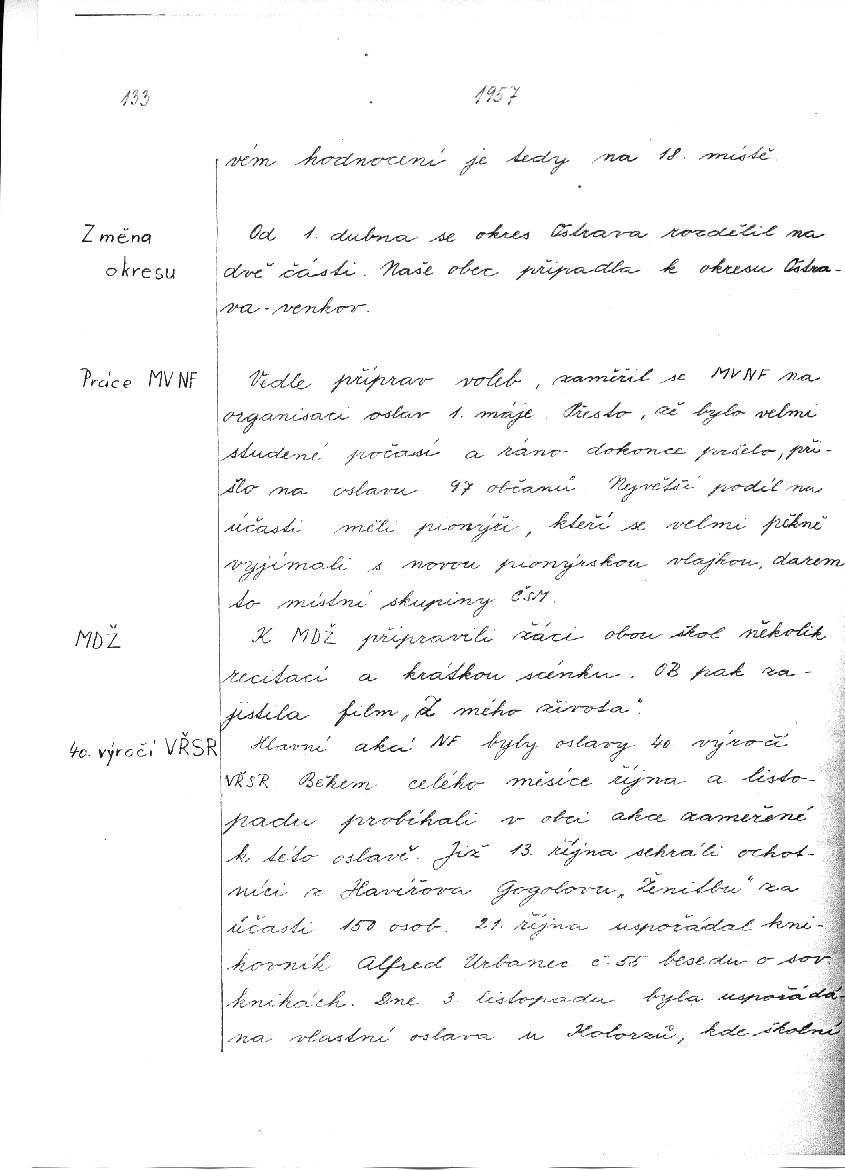 133
1957
vém hodnocení je tedy na 18. místě.
Změna
okresu
Od 1. dubna se okres Ostrava rozdělil na
dvě části. Naše obec připadla k okresu Ostra-
va-venkov.
Práce MVNF
Vedle příprav voleb, zaměřil se MVNF na
organisaci oslav 1. máje. Přesto, že bylo velmi
studené počasí a ráno dokonce pršelo, při-
šlo na oslavu 97 občanů. Největší podíl na
účasti měli pionýři, kteří se velmi pěkně
vyjímali s novou pionýrskou vlajkou, darem
to místní skupiny ČSM.
MDŽ
K MDŽ připravili žáci obou škol několik
recitací a krátkou scénku. OB pak za-
jistila film „Z mého života".
40. výročí VŘSR
Hlavní akcí NF byly oslavy 40. výročí
VŘSR. Během celého měsíce října a listo-
padu probíhali v obci akce zaměřené
k této oslavě. Již 13. října sehráli ochot-
níci z Havířova Gogolovu „Ženitbu" za
účasti 150 osob. 21. října uspořádal kni-
hovník Alfred Urbanec č. 55 besedu o sov.
knihách. Dne 3. listopadu byla uspořádá-
na vlastní oslava u Kolorzů, kde školní